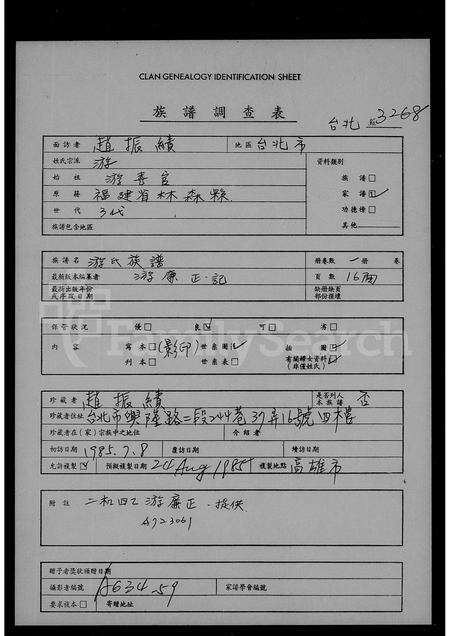 CLAN GENEALOGY IDENTIFICATION SHEET
族譜調查表
台北 3268
面訪者 趙振績 地區 台北市
姓氏宗派 游 資料類別
始祖 游善官 族譜□
原籍 福建省林森縣 家譜☑
世代 3代 功德榜□
族譜包含地區 其他
族譜名 游氏族譜 冊卷數 一冊 卷
最初版本編纂者 游廉正記 頁數 16面
最近出版年份 缺冊缺頁
或序跋日期 部份損壞
保管狀況 優□ 良☑ 可□ 劣□
內容 寫本□(影印) 世系圖☑ 插圖☑
刊本□ 世系表□ 有關婦女資料☑
(非僅姓氏)
珍藏者 趙振績 是否列入本族譜 否
珍藏者住址 台北市興隆路二段244巷37弄16號四樓
珍藏者在(家)宗族中之地位 介紹者
初訪日期 1985.7.8 覆訪日期 續訪日期
允許複製☑ 預擬複製日期 24 Aug 1985 複製地點 高雄市
附註 游廉正 提供
4723061
贈予者獎狀頒贈日期
攝影者編號 A634-59 家譜學會編號
要求複本□ 寄贈地址
FamilySearch